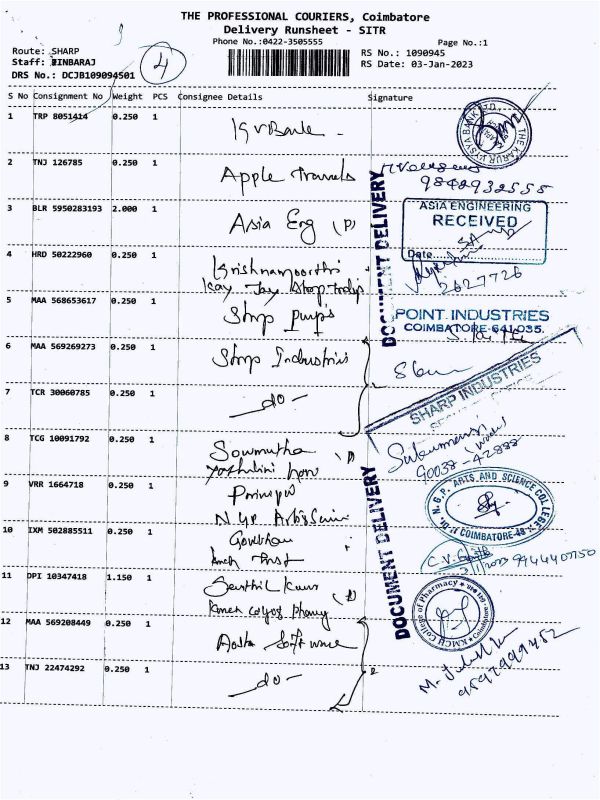 THE PROFESSIONAL COURIERS, Coimbatore
Delivery Runsheet - SITR
Phone No.:0422-3505555
Page No.:1
Route: SHARP
Staff: JINBARAJ
DRS No.: DCJB109094501
4
RS No.: 1090945
RS Date: 03-Jan-2023
S No Consignment No Weight PCS Consignee Details Signature
1 TRP 8051414 0.250 1
THE KARUR VYSYA BANK LTD.,
2 TNJ 126785 0.250 1 Apple Travels
9842932555
3 BLR 5950283193 2.000 1 Asia Eng (P)
ASIA ENGINEERING
RECEIVED
Date
4 HRD 50222960 0.250 1 Krishnamoorthi
2627726
DOCUMENT DELIVERY
5 MAA 568653617 0.250 1
POINT INDUSTRIES
COIMBATORE-641035.
6 MAA 569269273 0.250 1 Sharp Industries
SHARP INDUSTRIES
7 TCR 30060785 0.250 1 -do-
8 TCG 10091792 0.250 1 Sowmitha
90038-42888
9 VRR 1664718 0.250 1 Principal
N.G.P. ARTS AND SCIENCE COLLEGE
COIMBATORE-48
10 IXM 502885511 0.250 1
9944407750
11 DPI 10347418 1.150 1 Senthil
KMCH College of Pharmacy
Coimbatore
DOCUMENT DELIVERY
12 MAA 569208449 0.250 1 Aosta Software
9597999452
13 TNJ 22474292 0.250 1 -do-
2